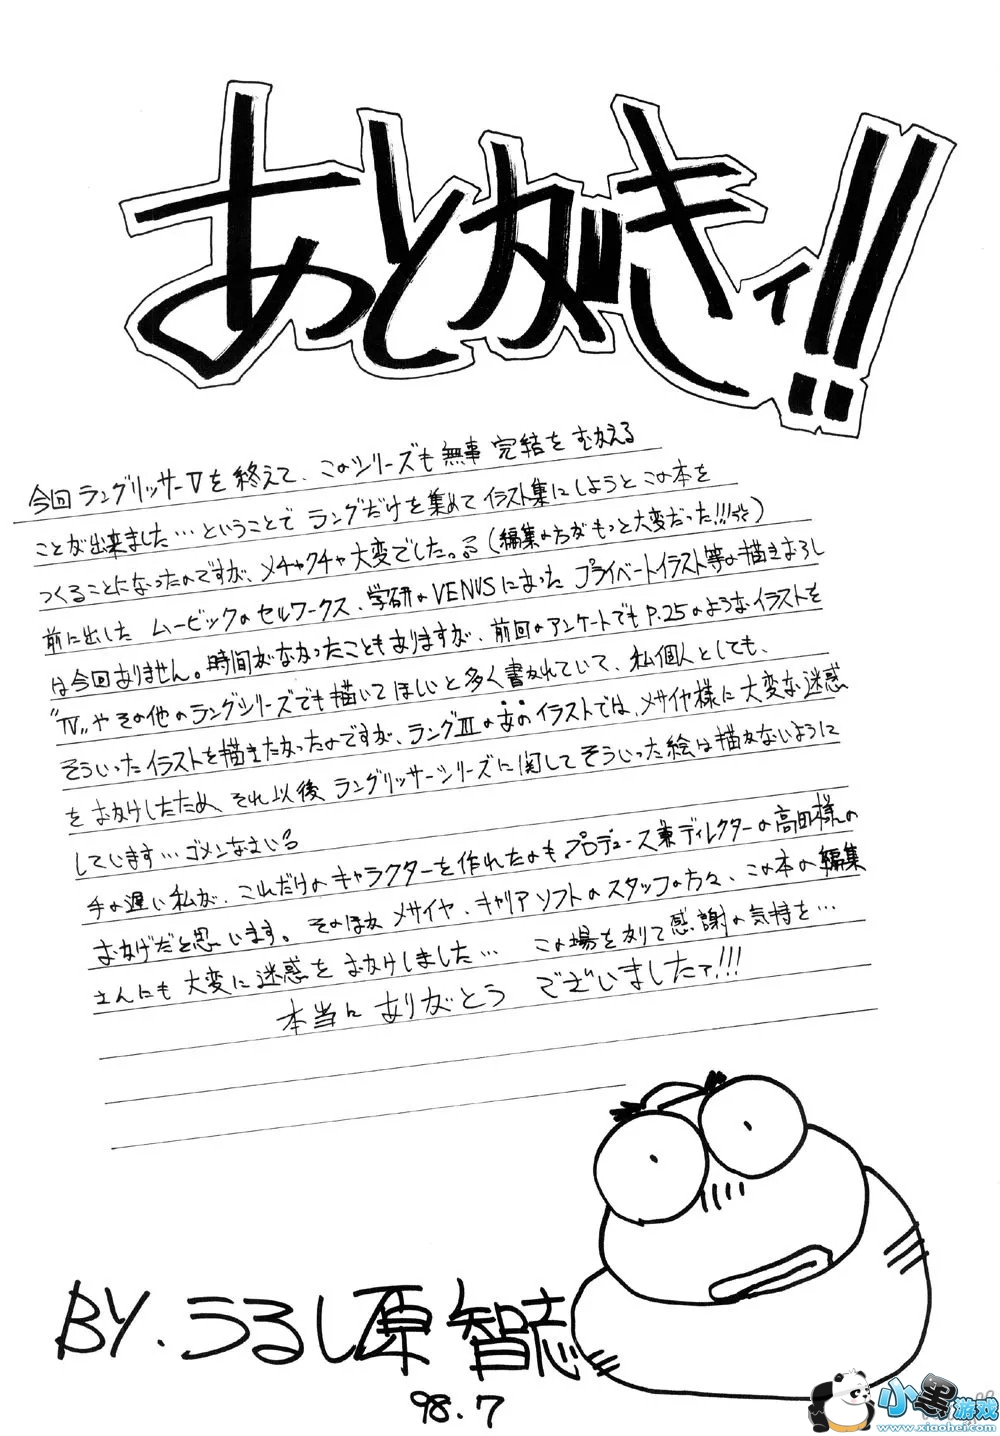 あとがきィ!!
今回ラングリッサーⅤを終えて、このシリーズも無事完結をむかえる
ことが出来ました…ということでラングだけを集めてイラスト集にしようとこの本を
つくることになったのですが、メチャクチャ大変でした。(編集の方がもっと大変だった!!!)
前に出した ムービックのセルワークス、学研のVENUSにあった プライベートイラスト等の描きおろし
は今回ありません。時間がなかったこともありますが、前回のアンケートでもP.25のようなイラストを
"Ⅳ"やその他のラングシリーズでも描いてほしいと多く書かれていて、私個人としても、
そういったイラストを描きたかったのですが、ラングⅢのあのイラストでは、メサイヤ様に大変な迷惑
をおかけしたため、それ以後ラングリッサーシリーズに関してそういった絵は描かないように
しています…ゴメンなさい
手の遅い私が、これだけのキャラクターを作れたのもプロデュース兼ディレクターの高田様の
おかげだと思います。そのほか メサイヤ、キャリアソフトのスタッフの方々、この本の編集
さんにも 大変に迷惑を おかけしました… この場を刈て感謝の気持を…
本当に ありがとう ございましたァ!!!
BY.うるし原 智志
98.7
小黑游戏
www.xiaohei.com